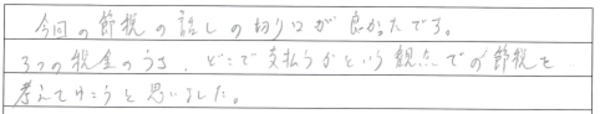 今回の節税の話しの切り口が良かったです。
3つの税金のうち、どこで支払うかという観点での節税を
考えてゆこうと思いました。